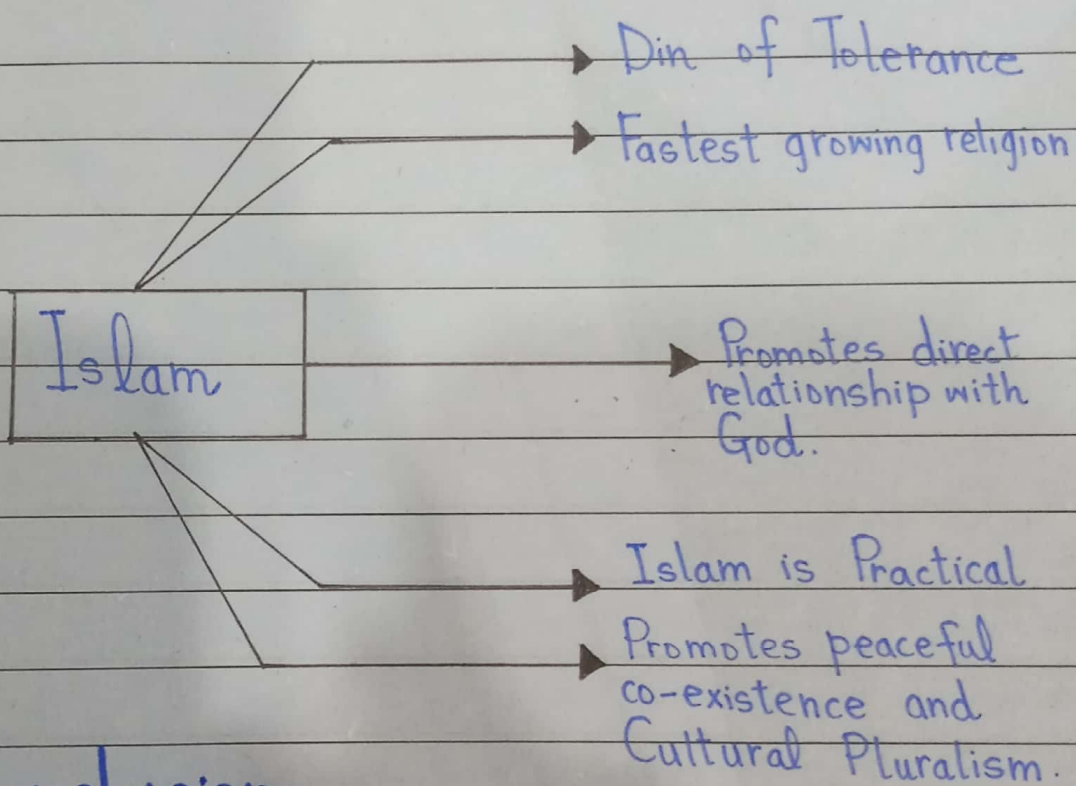 Din of Tolerance
Fastest growing religion
Islam
Promotes direct
relationship with
God.
Islam is Practical
Promotes peaceful
co-existence and
Cultural Pluralism.